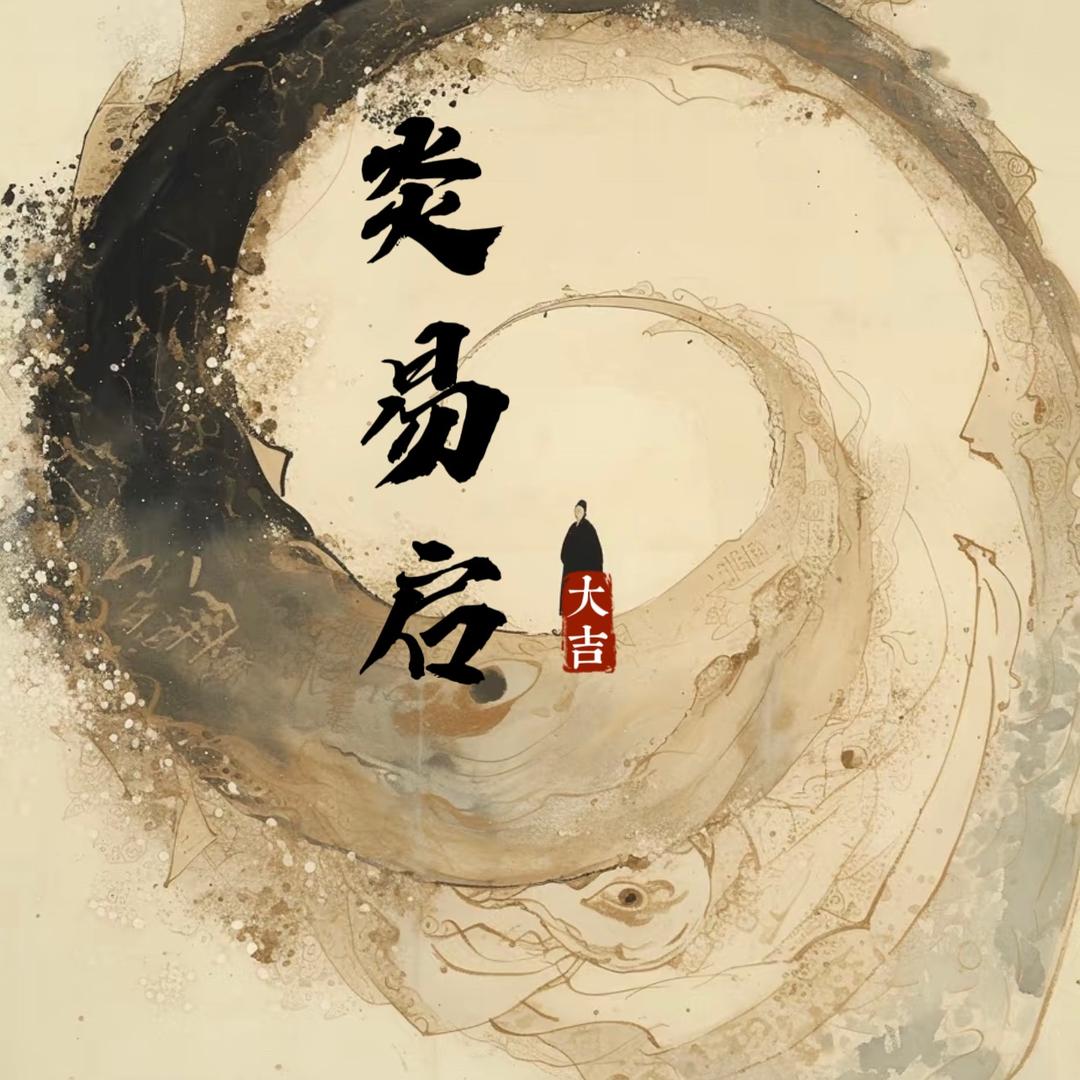 炎易启
大吉